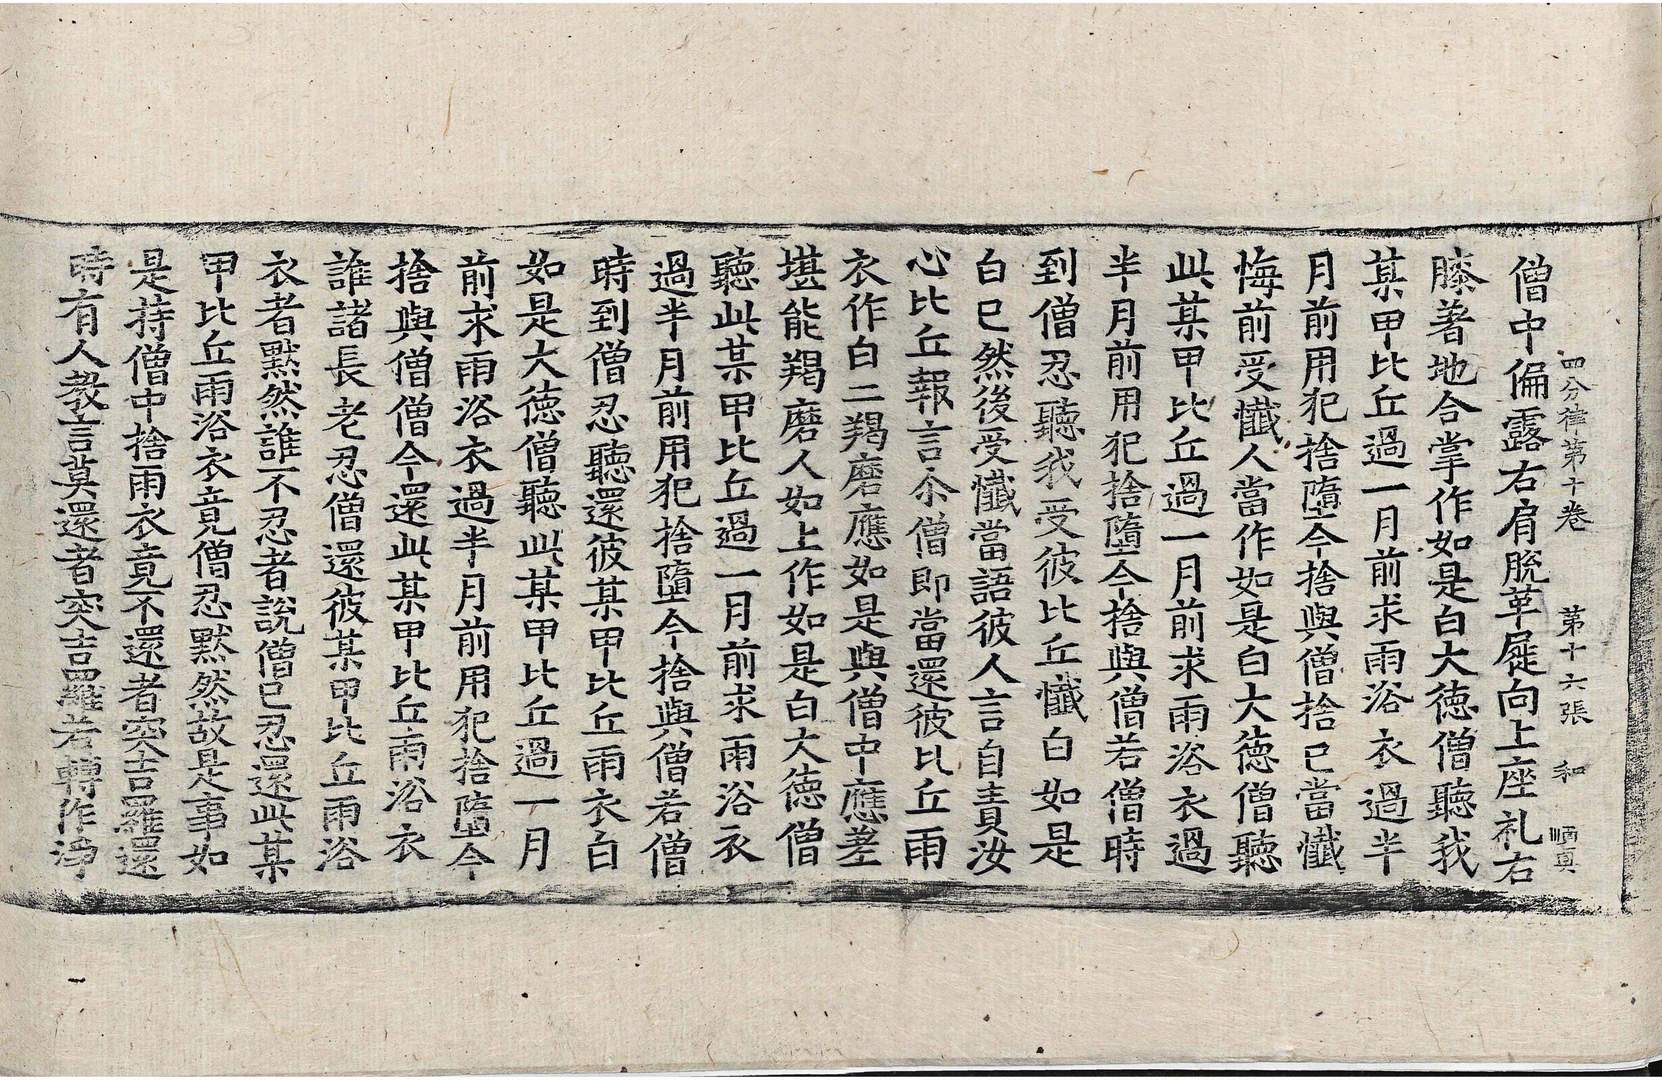 四分律第十卷 第十六張 和
僧中偏露右肩脫革屣向上座礼右
膝著地合掌作如是白大徳僧聽我
某甲比丘過一月前求雨浴衣過半
月前用犯捨墮今捨與僧捨已當懺
悔前受懺人當作如是白大徳僧聽
此某甲比丘過一月前求雨浴衣過
半月前用犯捨墮今捨與僧若僧時
到僧忍聽我受彼比丘懺白如是
白已然後受懺當語彼人言自責汝
心比丘報言尒僧即當還彼比丘雨
衣作白二羯磨應如是與僧中應差
堪能羯磨人如上作如是白大徳僧
聽此某甲比丘過一月前求雨浴衣
過半月前用犯捨墮今捨與僧若僧
時到僧忍聽還彼某甲比丘雨衣白
如是大徳僧聽此某甲比丘過一月
前求雨浴衣過半月前用犯捨墮今
捨與僧僧今還此某甲比丘雨浴衣
誰諸長老忍僧還彼某甲比丘雨浴
衣者默然誰不忍者說僧已忍還此某
甲比丘雨浴衣竟僧忍默然故是事如
是持僧中捨雨衣竟不還者突吉羅還
時有人教言莫還者突吉羅若轉作淨